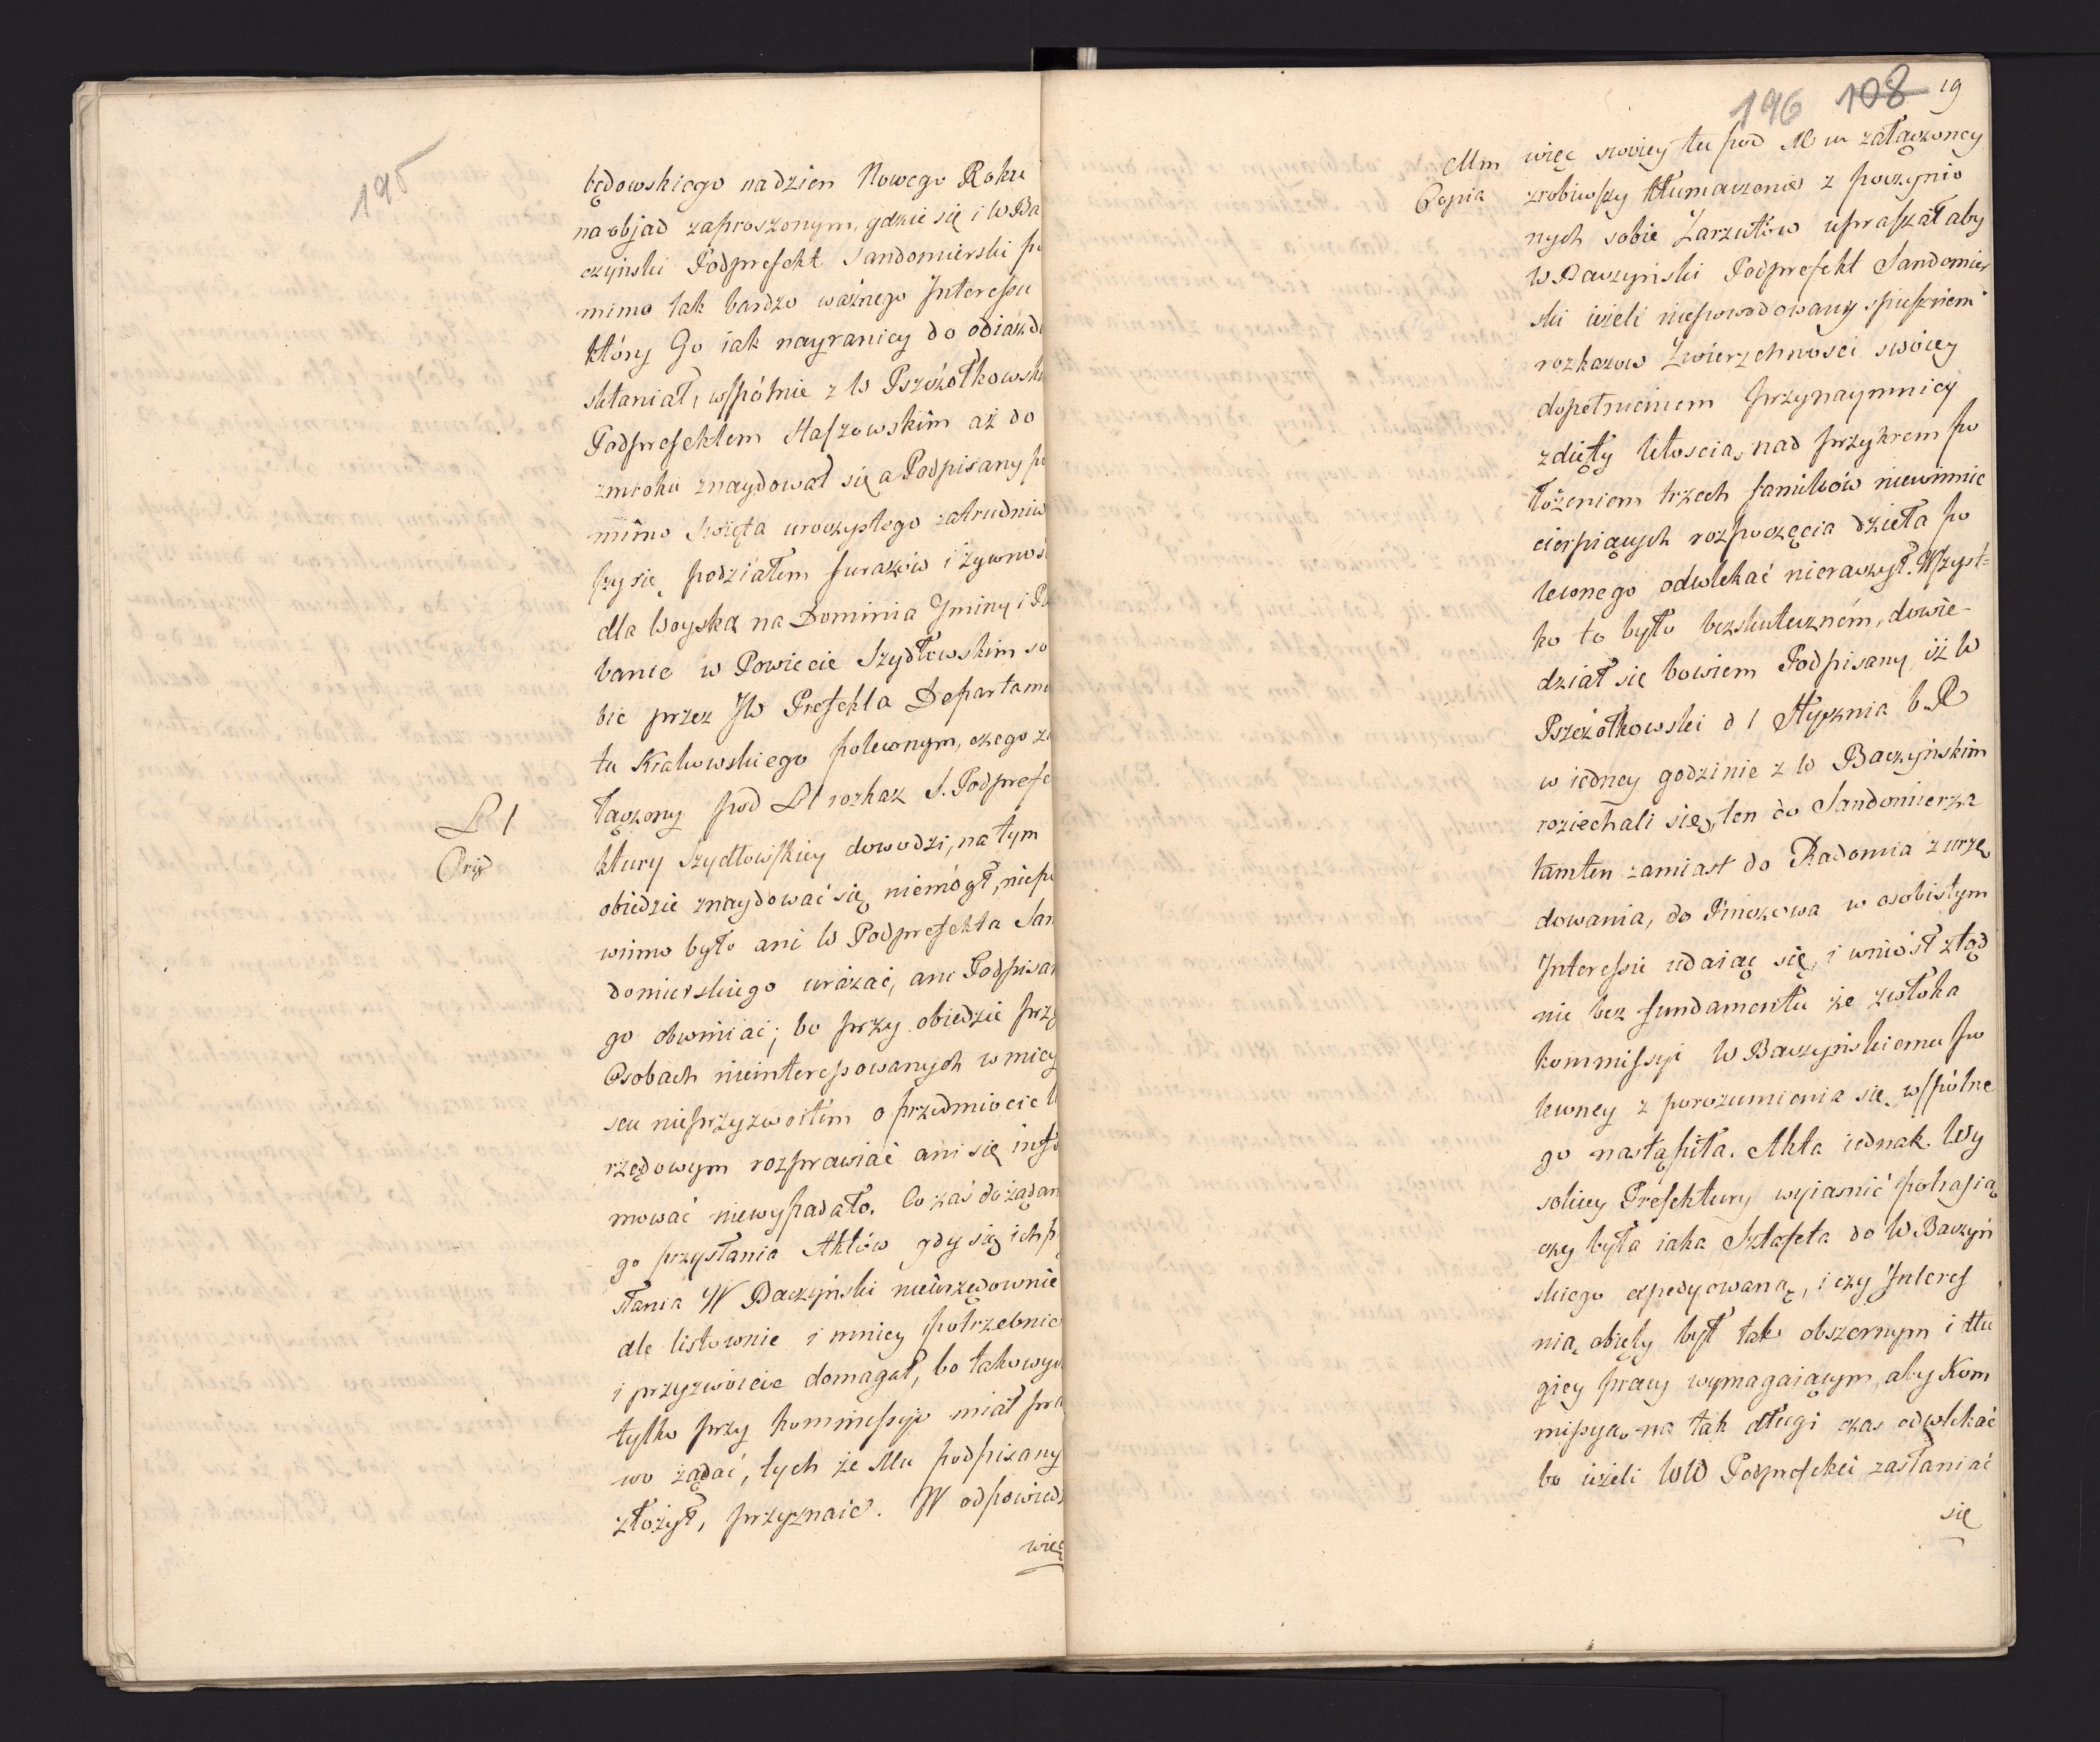 195
będowskiego nadzien Nowego Roku
na objad zaproszonym, gdzie się i W Ba
czyński Podprefekt Sandomierski po
mimo tak bardzo ważnego Interessu
który Go iak nayranicy do odiazdu
skłaniał, wspólnie z W Pszczółkowski
Podprefektem Staszowskim aż do
zmroku znaydował się a Podpisany po
mimo Swięta uroczystego zatrudniw
szy się podziałem furazów i żywnośc
dla Woyska na Dominia Gminy i Po
banie w Powiecie Szydłowskim so
bie przez JW Prefekta Departamen
tu Krakowskiego poleconym, czego za
L 1
Orig
łączony pod L1 rozkaz S. Podprefe
ktury Szydłowskiey dowodzi, na tym
obiedzie znaydować się niemógł, niepo
winno było ani W Podprefekta San
domierskiego urażać, ani Podpisan
go obwiniać; bo przy obiedzie przy
Osobach nieinteressowanych w miey
scu nieprzyzwoitem o przedmiocie U
rzędowym rozprawiać ani się info
mować niewypadało. Co zaś do żądan
go przysłania Aktów gdy się ich p
słania W Baczyński nieurzędownie
ale listownie i mniey potrzebnie
i przyzwoicie domagał, bo takowych
tylko przy kommissyi miał pra
wo żądać, tych że Mu podpisany
złożył, przyznaie. W odpowiedz
więc
196 108 19
Mm
Copia
więc swoiey tu pod M m załączoney
zrobiwszy tłumaczenie z poczynio
nych sobie Zarzutów upraszał aby
W Baczyński Podprefekt Sandomier
ski ieżeli niepowodowany spiesznem
rozkazow Zwierzchnosci swoiey
dopełnieniem przynaymniey
zdięty litoscią nad przykrem po
łożeniem trzech familiów niewinnie
cierpiących rozpoczęcia dzieła po
leconego odwlekać nieraczył. Wszyst=
ko to było bezskutecznem, dowie-
dział się bowiem Podpisany iż W
Pszczółkowski d 1 Stycznia b. R
w iedney godzinie z W Baczyńskim
roziechali się, ten do Sandomierza
tamten zamiast do Radomia z urzę
dowania, do Pinczowa w osobistym
Interessie udaiąc się, i wniósł ztąd
nie bez fundamentu że zwłoka
kommissyi W Baczyńskiemu po
leconey z porozumienia się wspólne
go nastąpiła. Akta iednak Wy
sokiey Prefektury wyiasnić potrafią
czy była iaka Sztafeta do W Baczyń
skiego expedyowaną, i czy Interes
nią obięty był tak obszernym i dłu
giey pracy wymagaiącym, aby Kom
missyą na tak długi czas odwlekać
bo ieżeli WW Podprefekci zasłaniać
się